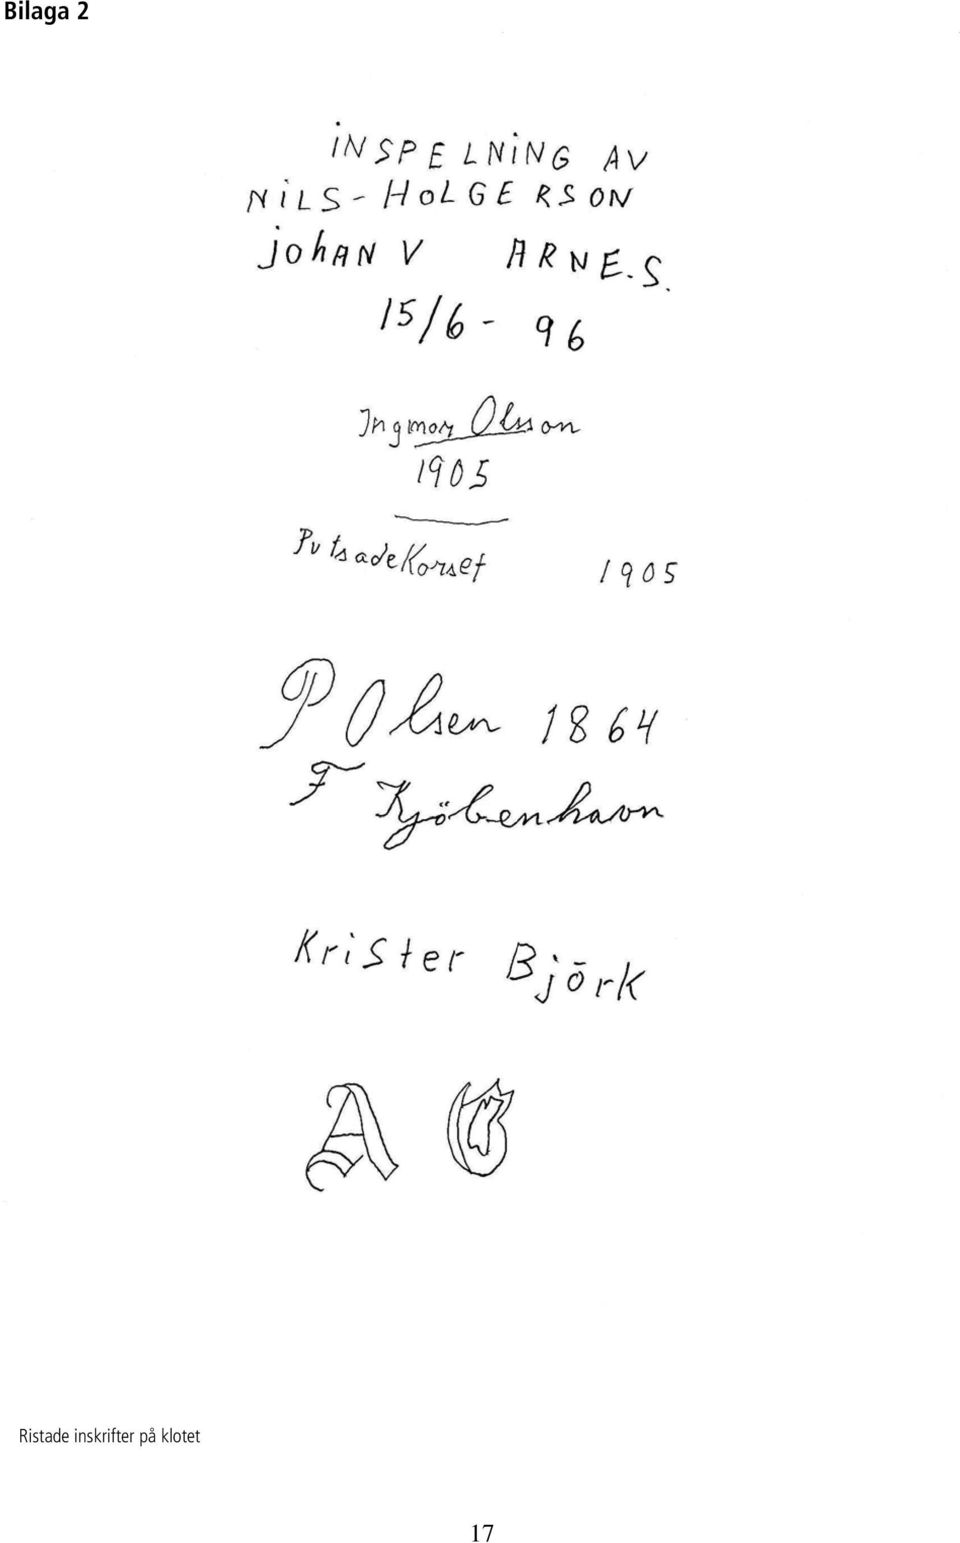 Bilaga 2
iNSPELNiNG AV
NiLS-HoLGERSON
johAN V ARNE.S.
15/6-96
Ingmar Olsson
1905
PutsadeKorset 1905
P Olsen 1864
F Kjöbenhavn
KriSter Björk
A
Ristade inskrifter på klotet
17